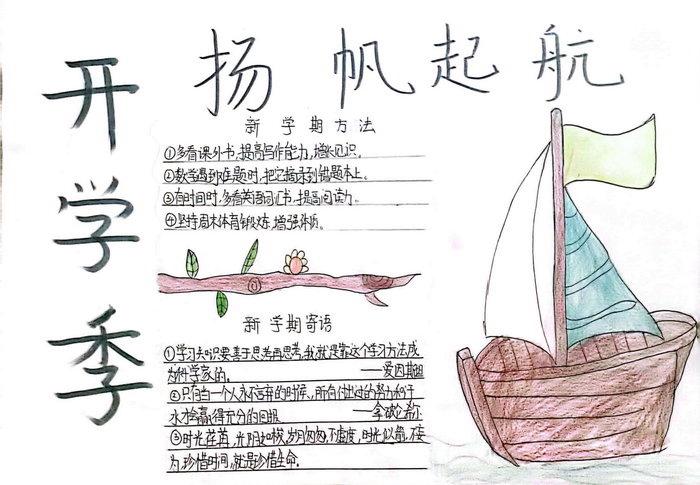 开学季
扬帆起航
新学期方法
①多看课外书,提高写作能力,增长见识。
②数学遇到难题时,把它摘录到错题本上。
③有时间时,多看英语词汇书,提高阅读力。
④坚持周末体育锻炼,增强体质。
新学期寄语
①学习知识要善于思考再思考,我就是靠这个学习方法成
为科学家的。——爱因斯坦
②只有当一个人永不言弃的时候,所有付出过的努力和汗
水才会赢得充分的回报——拿破仑·希尔
③时光荏苒,光阴如梭,岁月匆匆,不虚度,时光似箭,不妄
为,珍惜时间,就是珍惜生命.